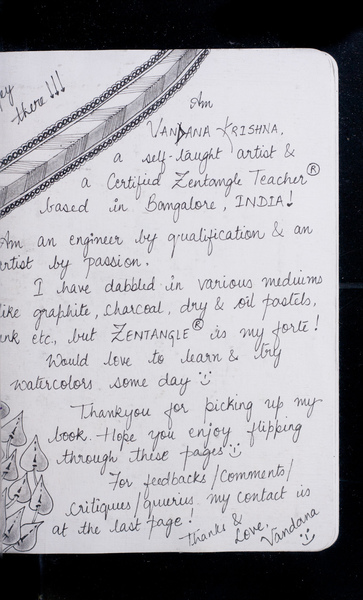 Hey
there!!!
Am
VANDANA KRISHNA,
a self-taught artist &
a Certified Zentangle Teacher®
based in Bangalore, INDIA!
Am an engineer by qualification & an
artist by passion.
I have dabbled in various mediums
like graphite, charcoal, dry & oil pastels,
ink etc., but ZENTANGLE® is my forte!
Would love to learn & try
watercolors some day :)
Thankyou for picking up my
book. Hope you enjoy flipping
through these pages :)
For feedbacks/comments/
critiques/queries my contact is
at the last page!
Thanks &
Love,
Vandana
:)